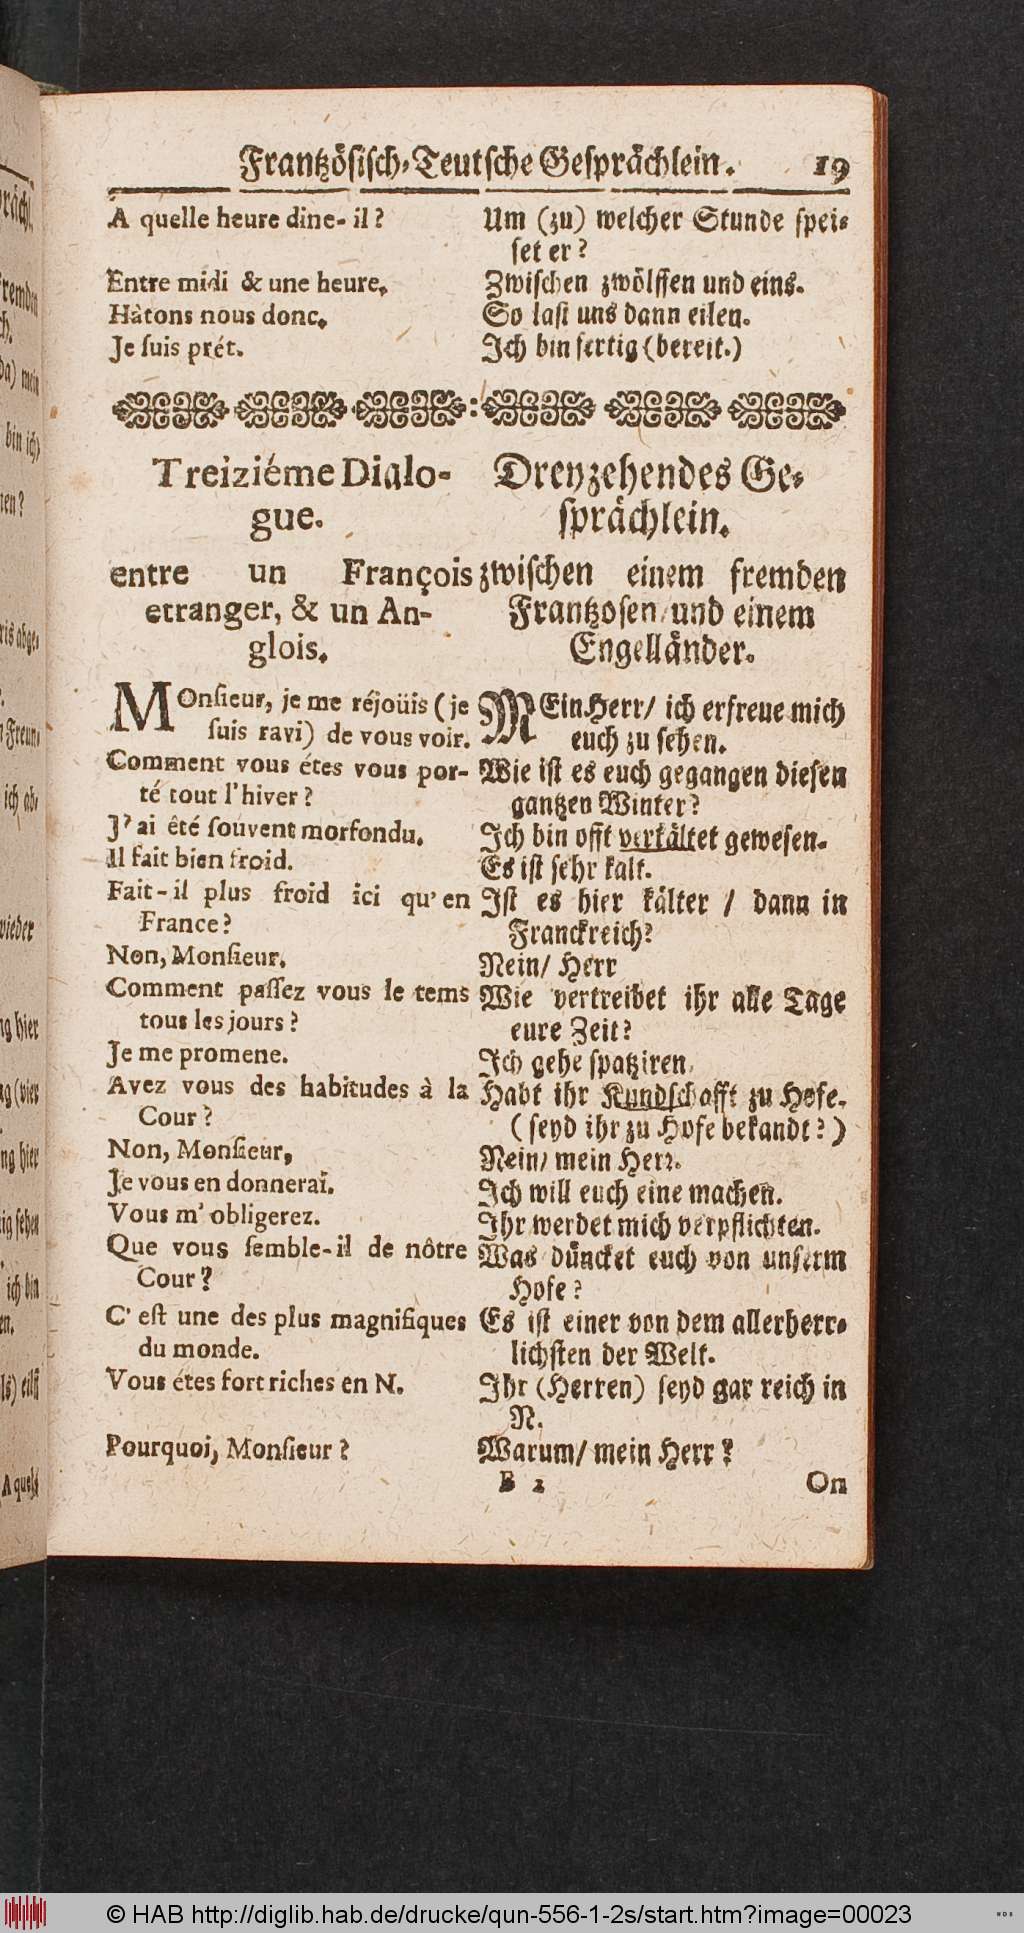 Frantzösisch-Teutsche Gesprächlein. 19
A quelle heure dine-il?
Entre midi & une heure.
Hàtons nous donc.
Je ſuis prét.
Um (zu) welcher Stunde ſpei-
ſet er?
Zwiſchen zwölffen und eins.
So laſt uns dann eilen.
Ich bin fertig (bereit.)
Treiziéme Dialo-
gue.
entre un François
etranger, & un An-
glois.
Dreyzehendes Ge-
ſprächlein.
zwiſchen einem fremden
Frantzoſen/und einem
Engelländer.
MOnſieur, je me réjoüis (je
ſuis ravi) de vous voir.
Comment vous étes vous por-
té tout l'hiver?
J'ai êté ſouvent morfondu.
Il fait bien froid.
Fait-il plus froid ici qu'en
France?
Non, Monſieur.
Comment paſſez vous le tems
tous les jours?
Je me promene.
Avez vous des habitudes à la
Cour?
Non, Monſieur,
Je vous en donnerai.
Vous m'obligerez.
Que vous ſemble-il de nôtre
Cour?
C'eſt une des plus magnifiques
du monde.
Vous étes fort riches en N.
Pourquoi, Monſieur?
MEin Herr/ ich erfreue mich
euch zu ſehen.
Wie iſt es euch gegangen dieſen
gantzen Winter?
Ich bin offt verkältet geweſen.
Es iſt ſehr kalt.
Iſt es hier kälter / dann in
Franckreich?
Nein/ Herr
Wie vertreibet ihr alle Tage
eure Zeit?
Ich gehe ſpatziren.
Habt ihr Kundſchafft zu Hofe.
(ſeyd ihr zu Hofe bekandt?)
Nein/ mein Herr.
Ich will euch eine machen.
Ihr werdet mich verpflichten.
Was düncket euch von unſerm
Hofe?
Es iſt einer von dem allerherr-
lichſten der Welt.
Ihr (Herren) ſeyd gar reich in
N.
Warum/ mein Herr?
B 2 On
© HAB http://diglib.hab.de/drucke/qun-556-1-2s/start.htm?image=00023